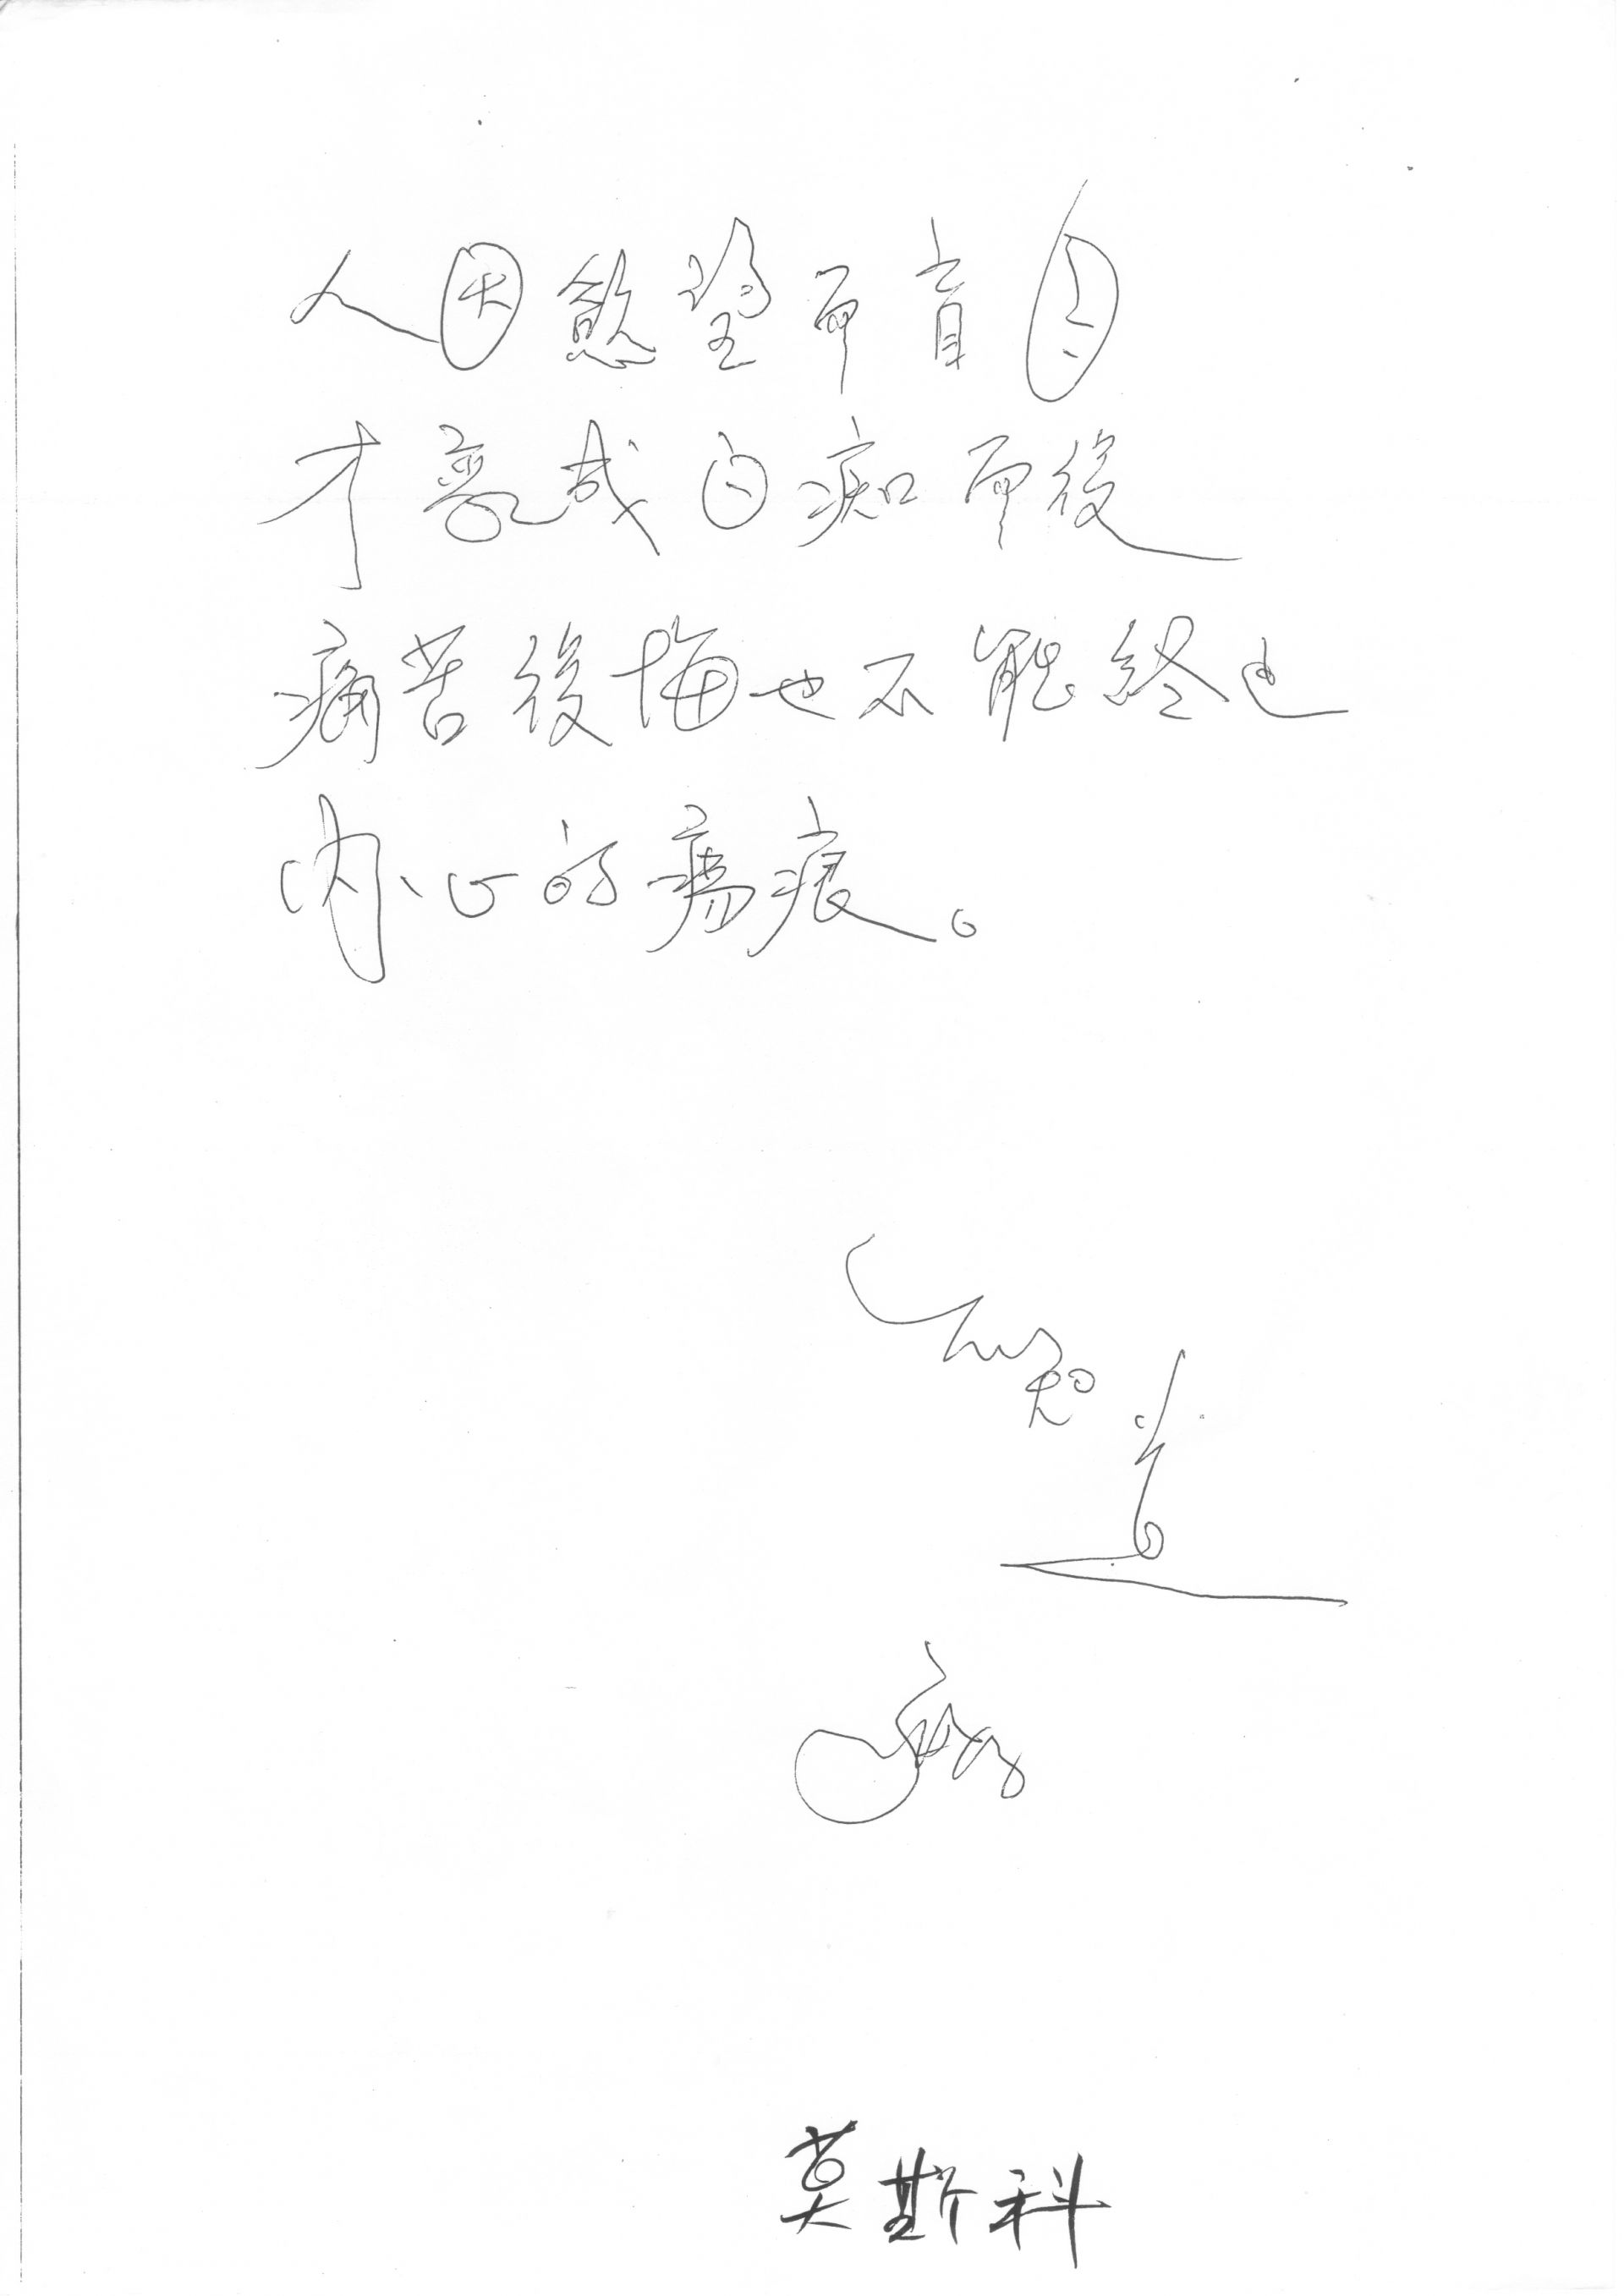 人因慾望而盲目
才變成白痴而後
痛苦後悔也不能終止
內心的瘍痕。
莫斯科